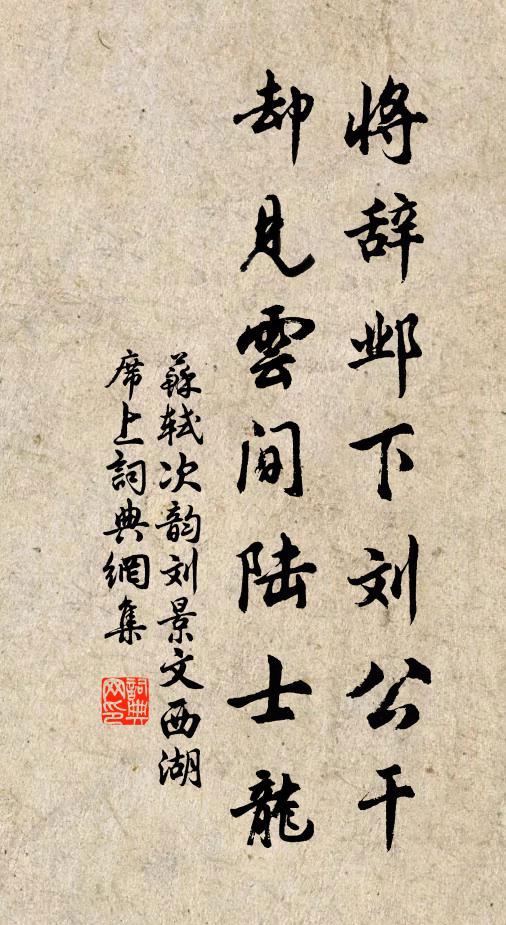 将辞邺下刘公干
却见雲间陆士龍
蘇轼次韵刘景文西湖
席上詞典網集
詞典網印